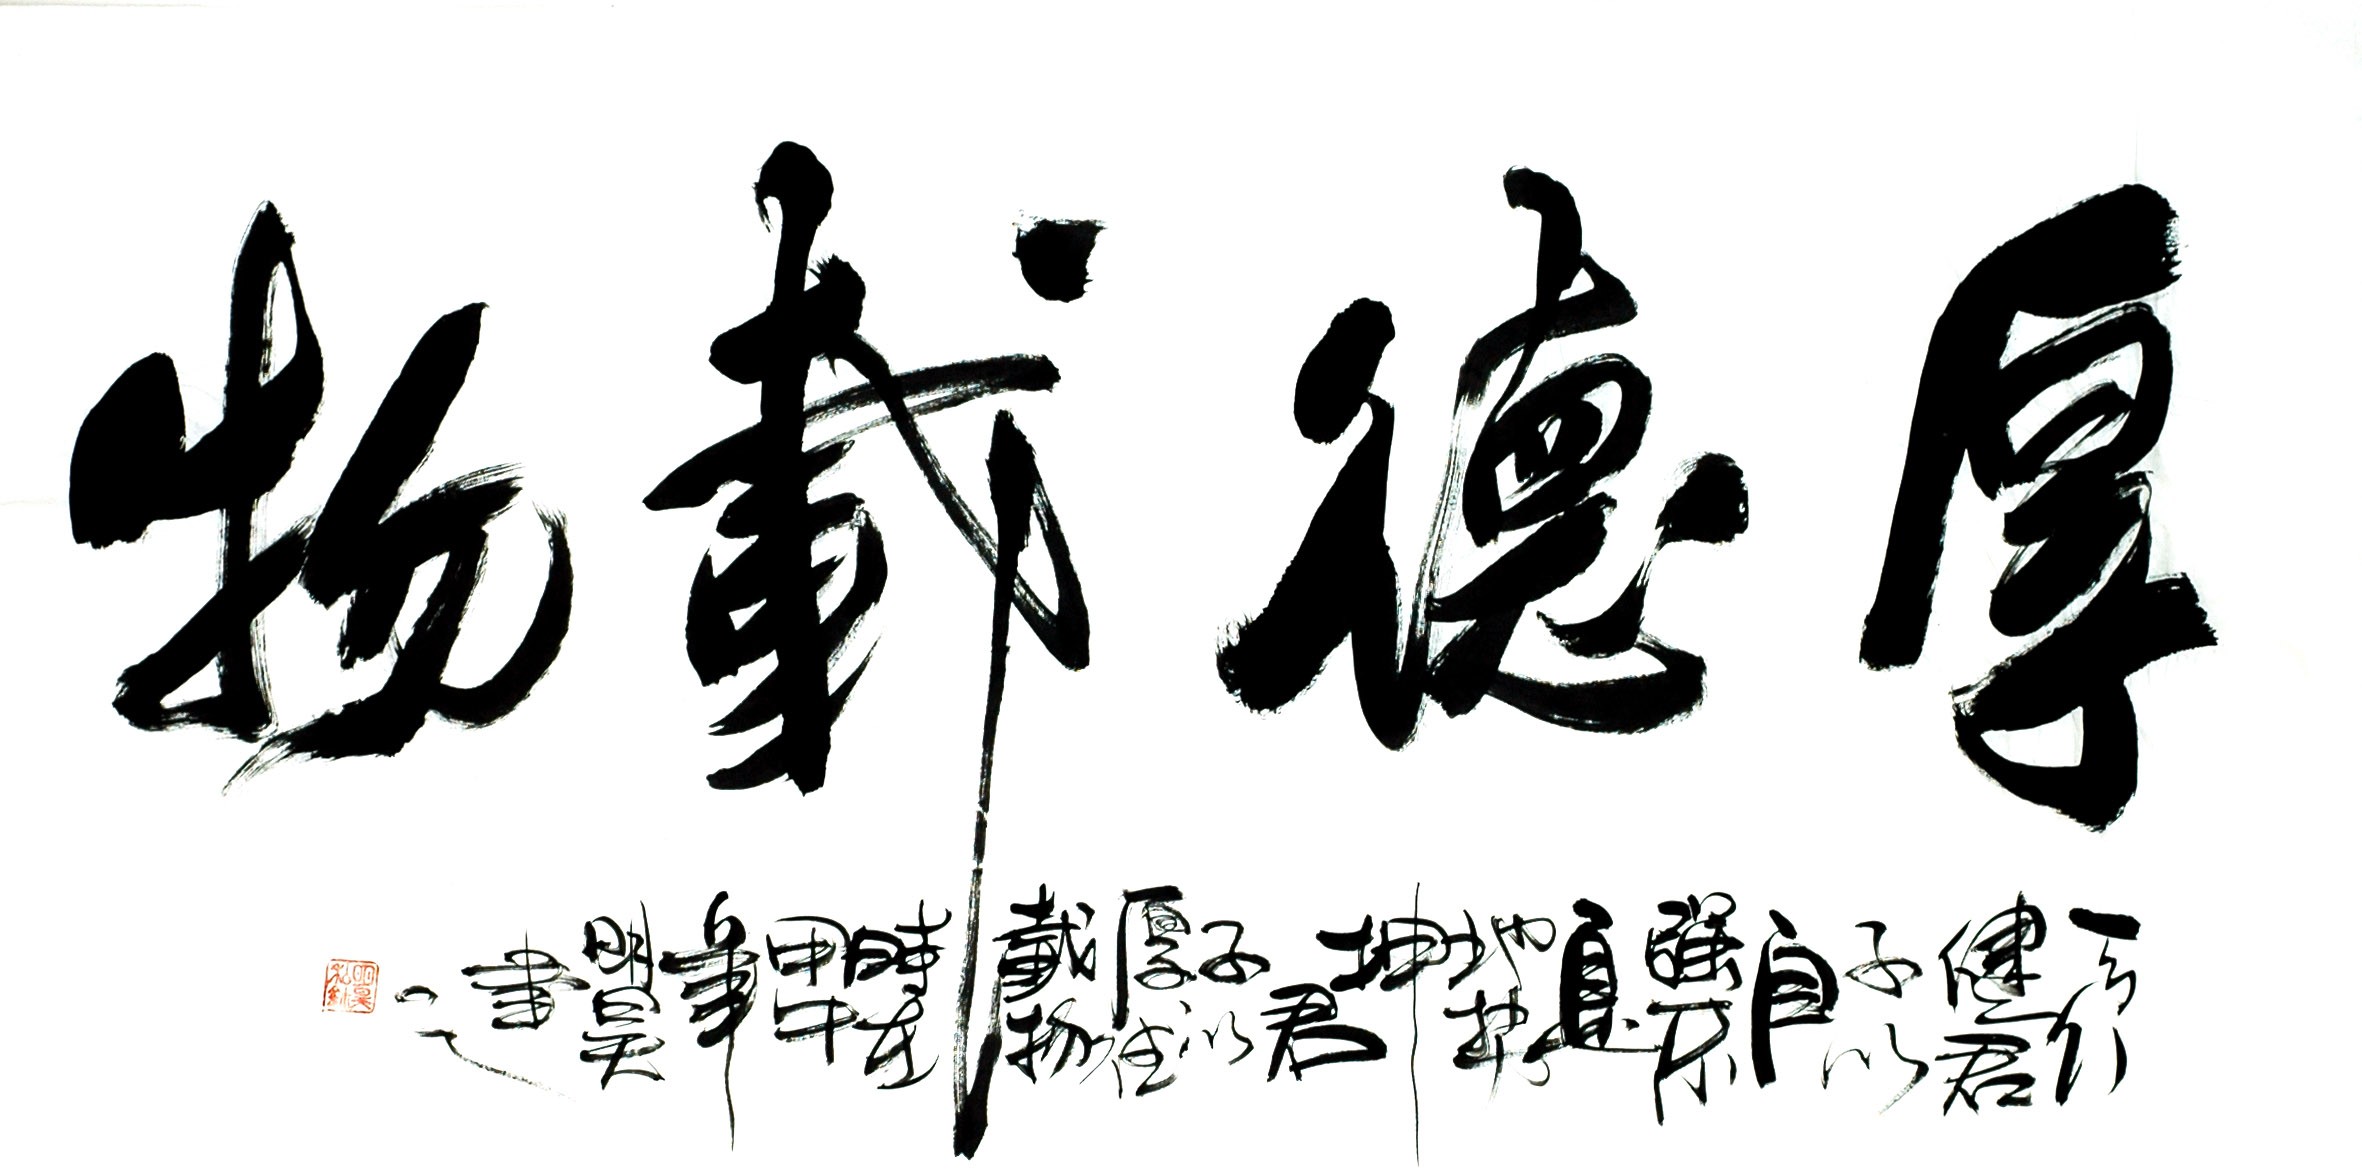 厚德載物
天行
健君
子以
自
強不
息
地势
坤
君
子以
厚德
載物
時在
甲午
年
明昊
書